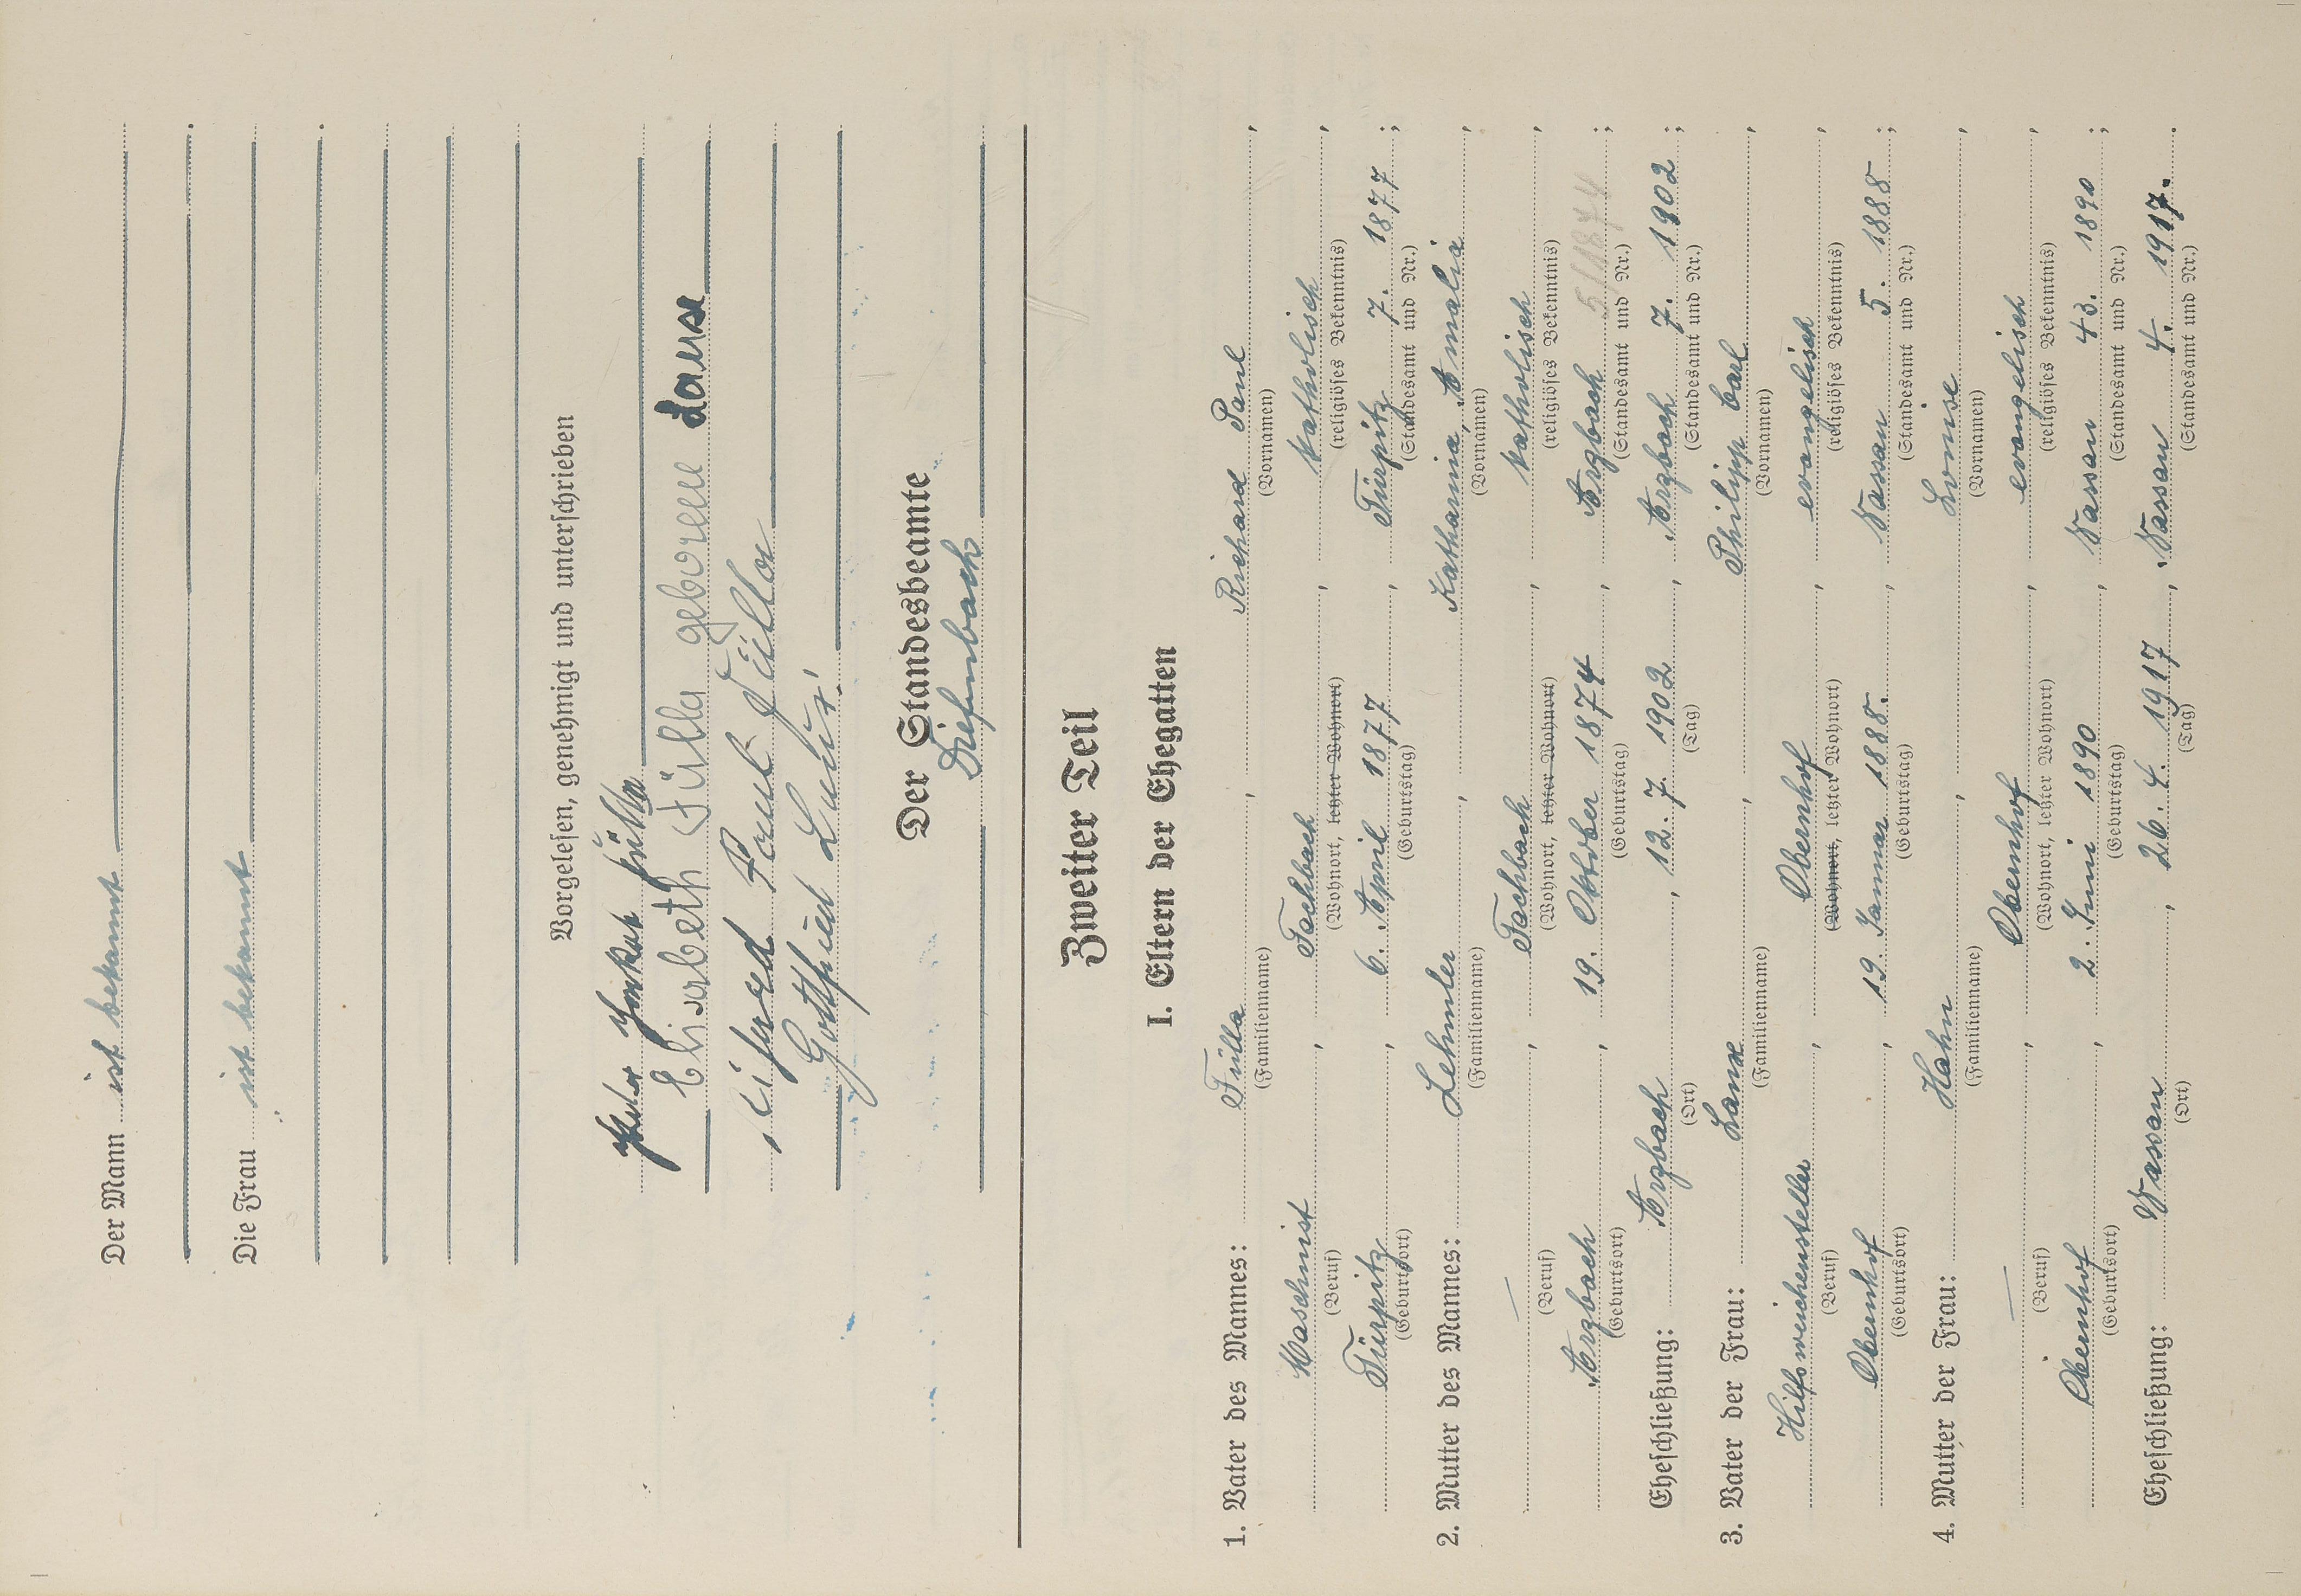 Der Mann ist bekannt
Die Frau ist bekannt
Vorgelesen, genehmigt und unterschrieben
Fülla
Elisabeth Fülla geborene Lause
Paul Fülla
Gottfried
Der Standesbeamte
Diefenbach
Zweiter Teil
I. Eltern der Ehegatten
1. Vater des Mannes: Fülla, Richard Paul,
(Familienname) (Vornamen)
Maschinist, Fachbach, katholisch,
(Beruf) (Wohnort, letzter Wohnort) (religiöses Bekenntnis)
Türpitz, 6. April 1877, Türpitz 7. 1877;
(Geburtsort) (Geburtstag) (Standesamt und Nr.)
2. Mutter des Mannes: Lehmler, Katharina, Amalia,
(Familienname) (Vornamen)
—, Fachbach, katholisch,
(Beruf) (Wohnort, letzter Wohnort) (religiöses Bekenntnis)
Arzbach, 19. Oktober 1874, Arzbach 5/1874;
(Geburtsort) (Geburtstag) (Standesamt und Nr.)
Eheschließung: Arzbach, 12. 7. 1902, Arzbach 7. 1902;
(Ort) (Tag) (Standesamt und Nr.)
3. Vater der Frau: Lause, Philipp Carl,
(Familienname) (Vornamen)
Hilfsweichensteller, Obernhof, evangelisch,
(Beruf) (Wohnort, letzter Wohnort) (religiöses Bekenntnis)
Obernhof, 19. Januar 1888., Nassau 5. 1888;
(Geburtsort) (Geburtstag) (Standesamt und Nr.)
4. Mutter der Frau: Hahn, Louise,
(Familienname) (Vornamen)
—, Obernhof, evangelisch,
(Beruf) (Wohnort, letzter Wohnort) (religiöses Bekenntnis)
Obernhof, 2. Juni 1890, Nassau 43. 1890;
(Geburtsort) (Geburtstag) (Standesamt und Nr.)
Eheschließung: Nassau, 26. 4. 1917, Nassau 4. 1917.
(Ort) (Tag) (Standesamt und Nr.)